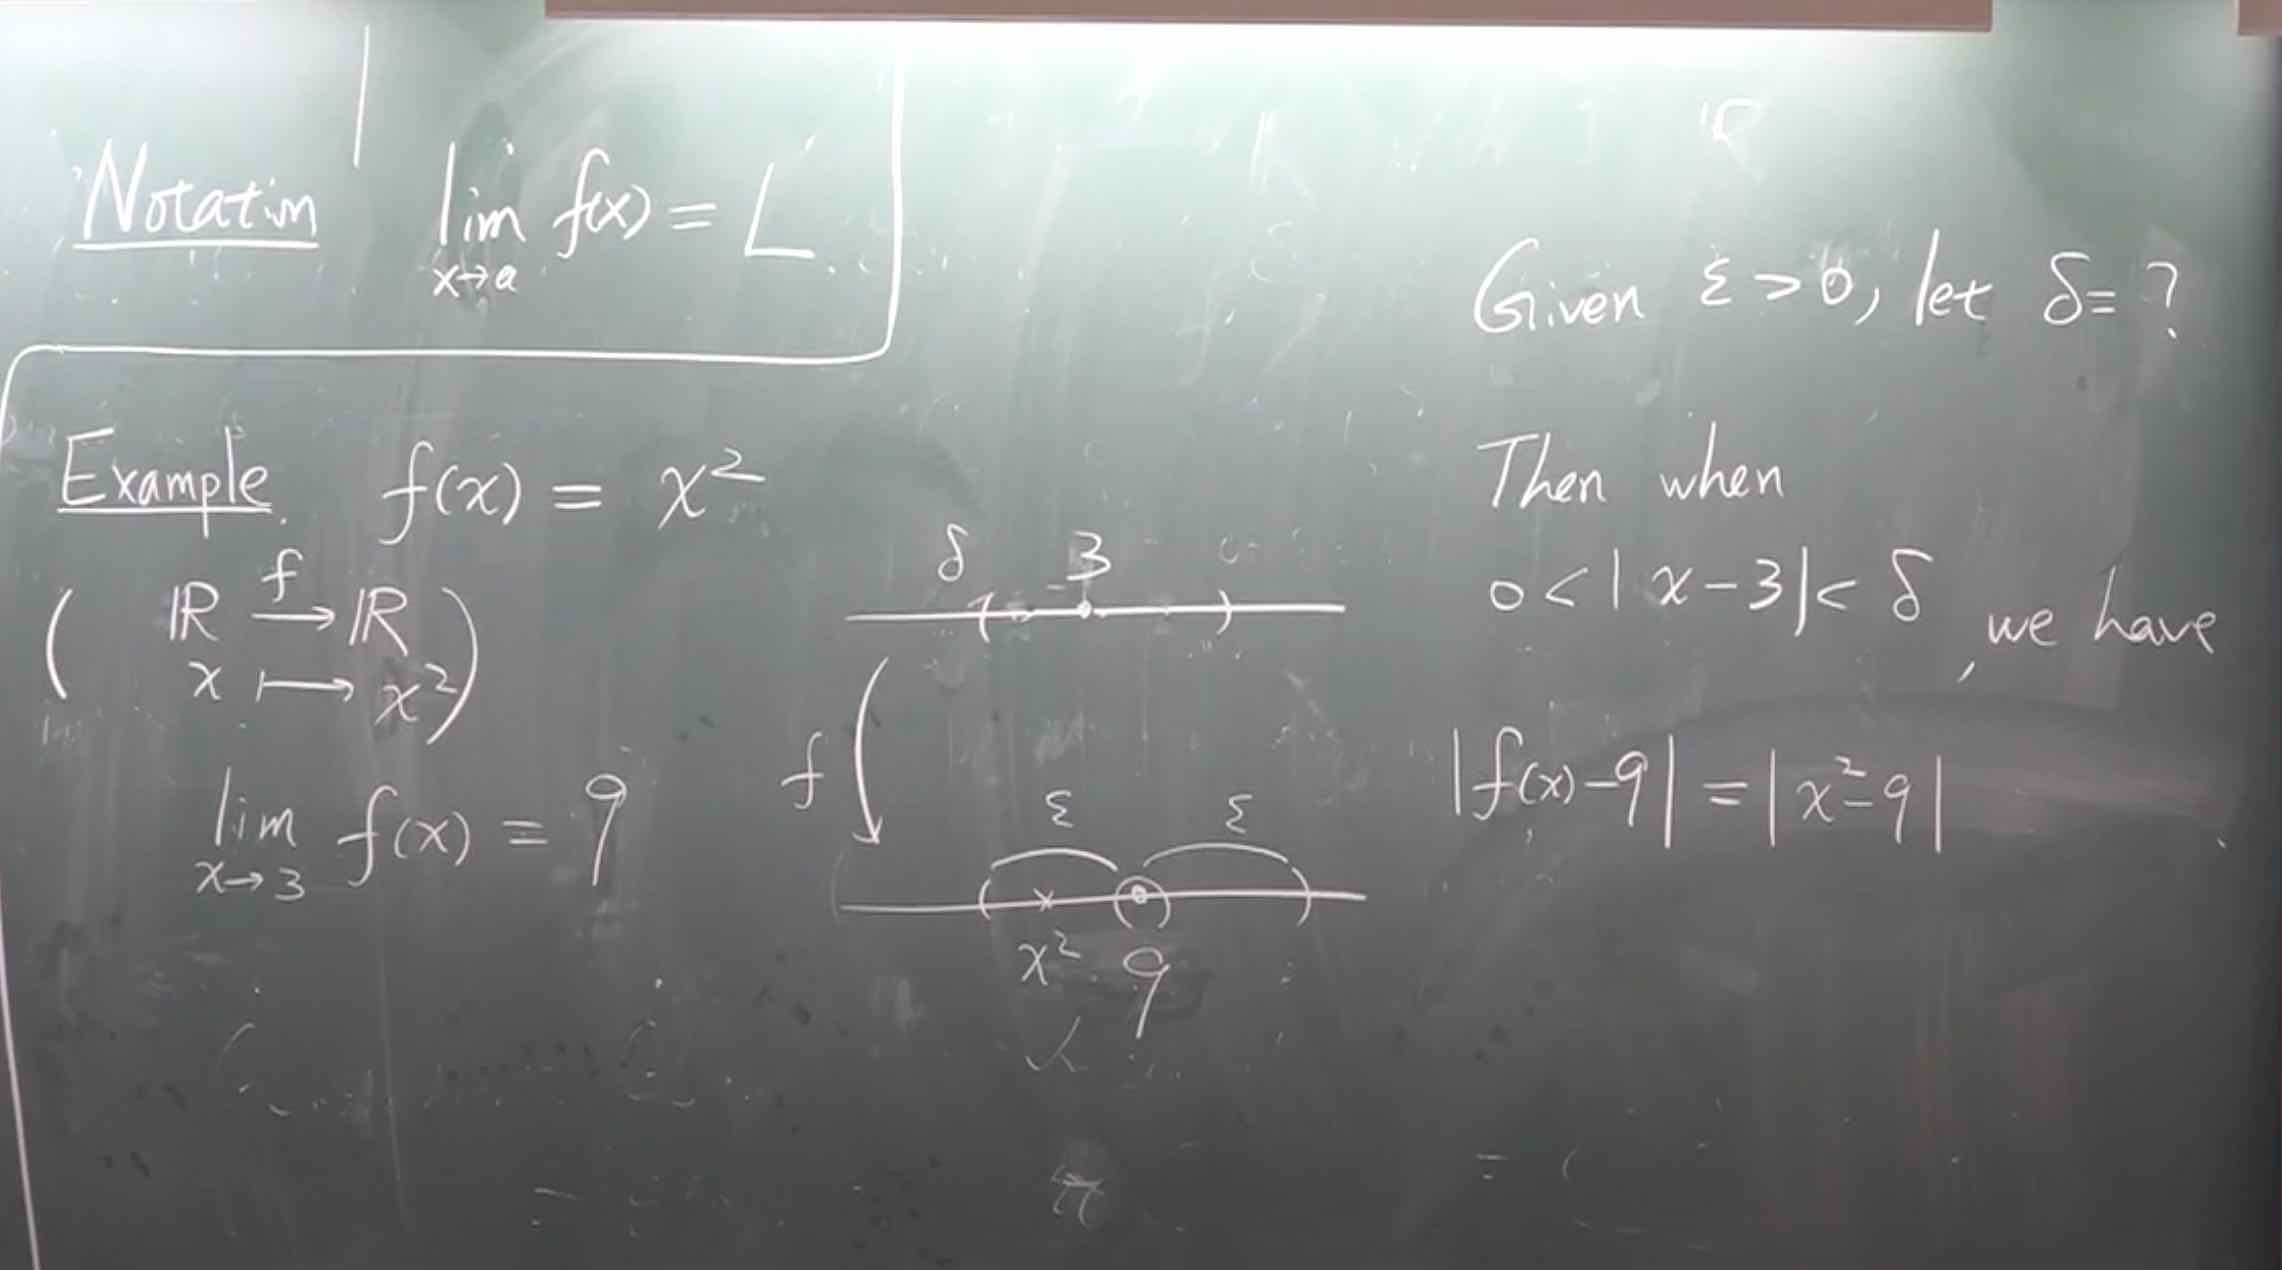 Notation lim f(x) = L
x→a
Example. f(x) = x²
( ℝ f→ ℝ
x ↦ x² )
lim f(x) = 9
x→3
δ 3
f
ε ε
x² 9
Given ε > 0, let δ = ?
Then when
0 < | x - 3 | < δ , we have
| f(x) - 9 | = | x² - 9 |